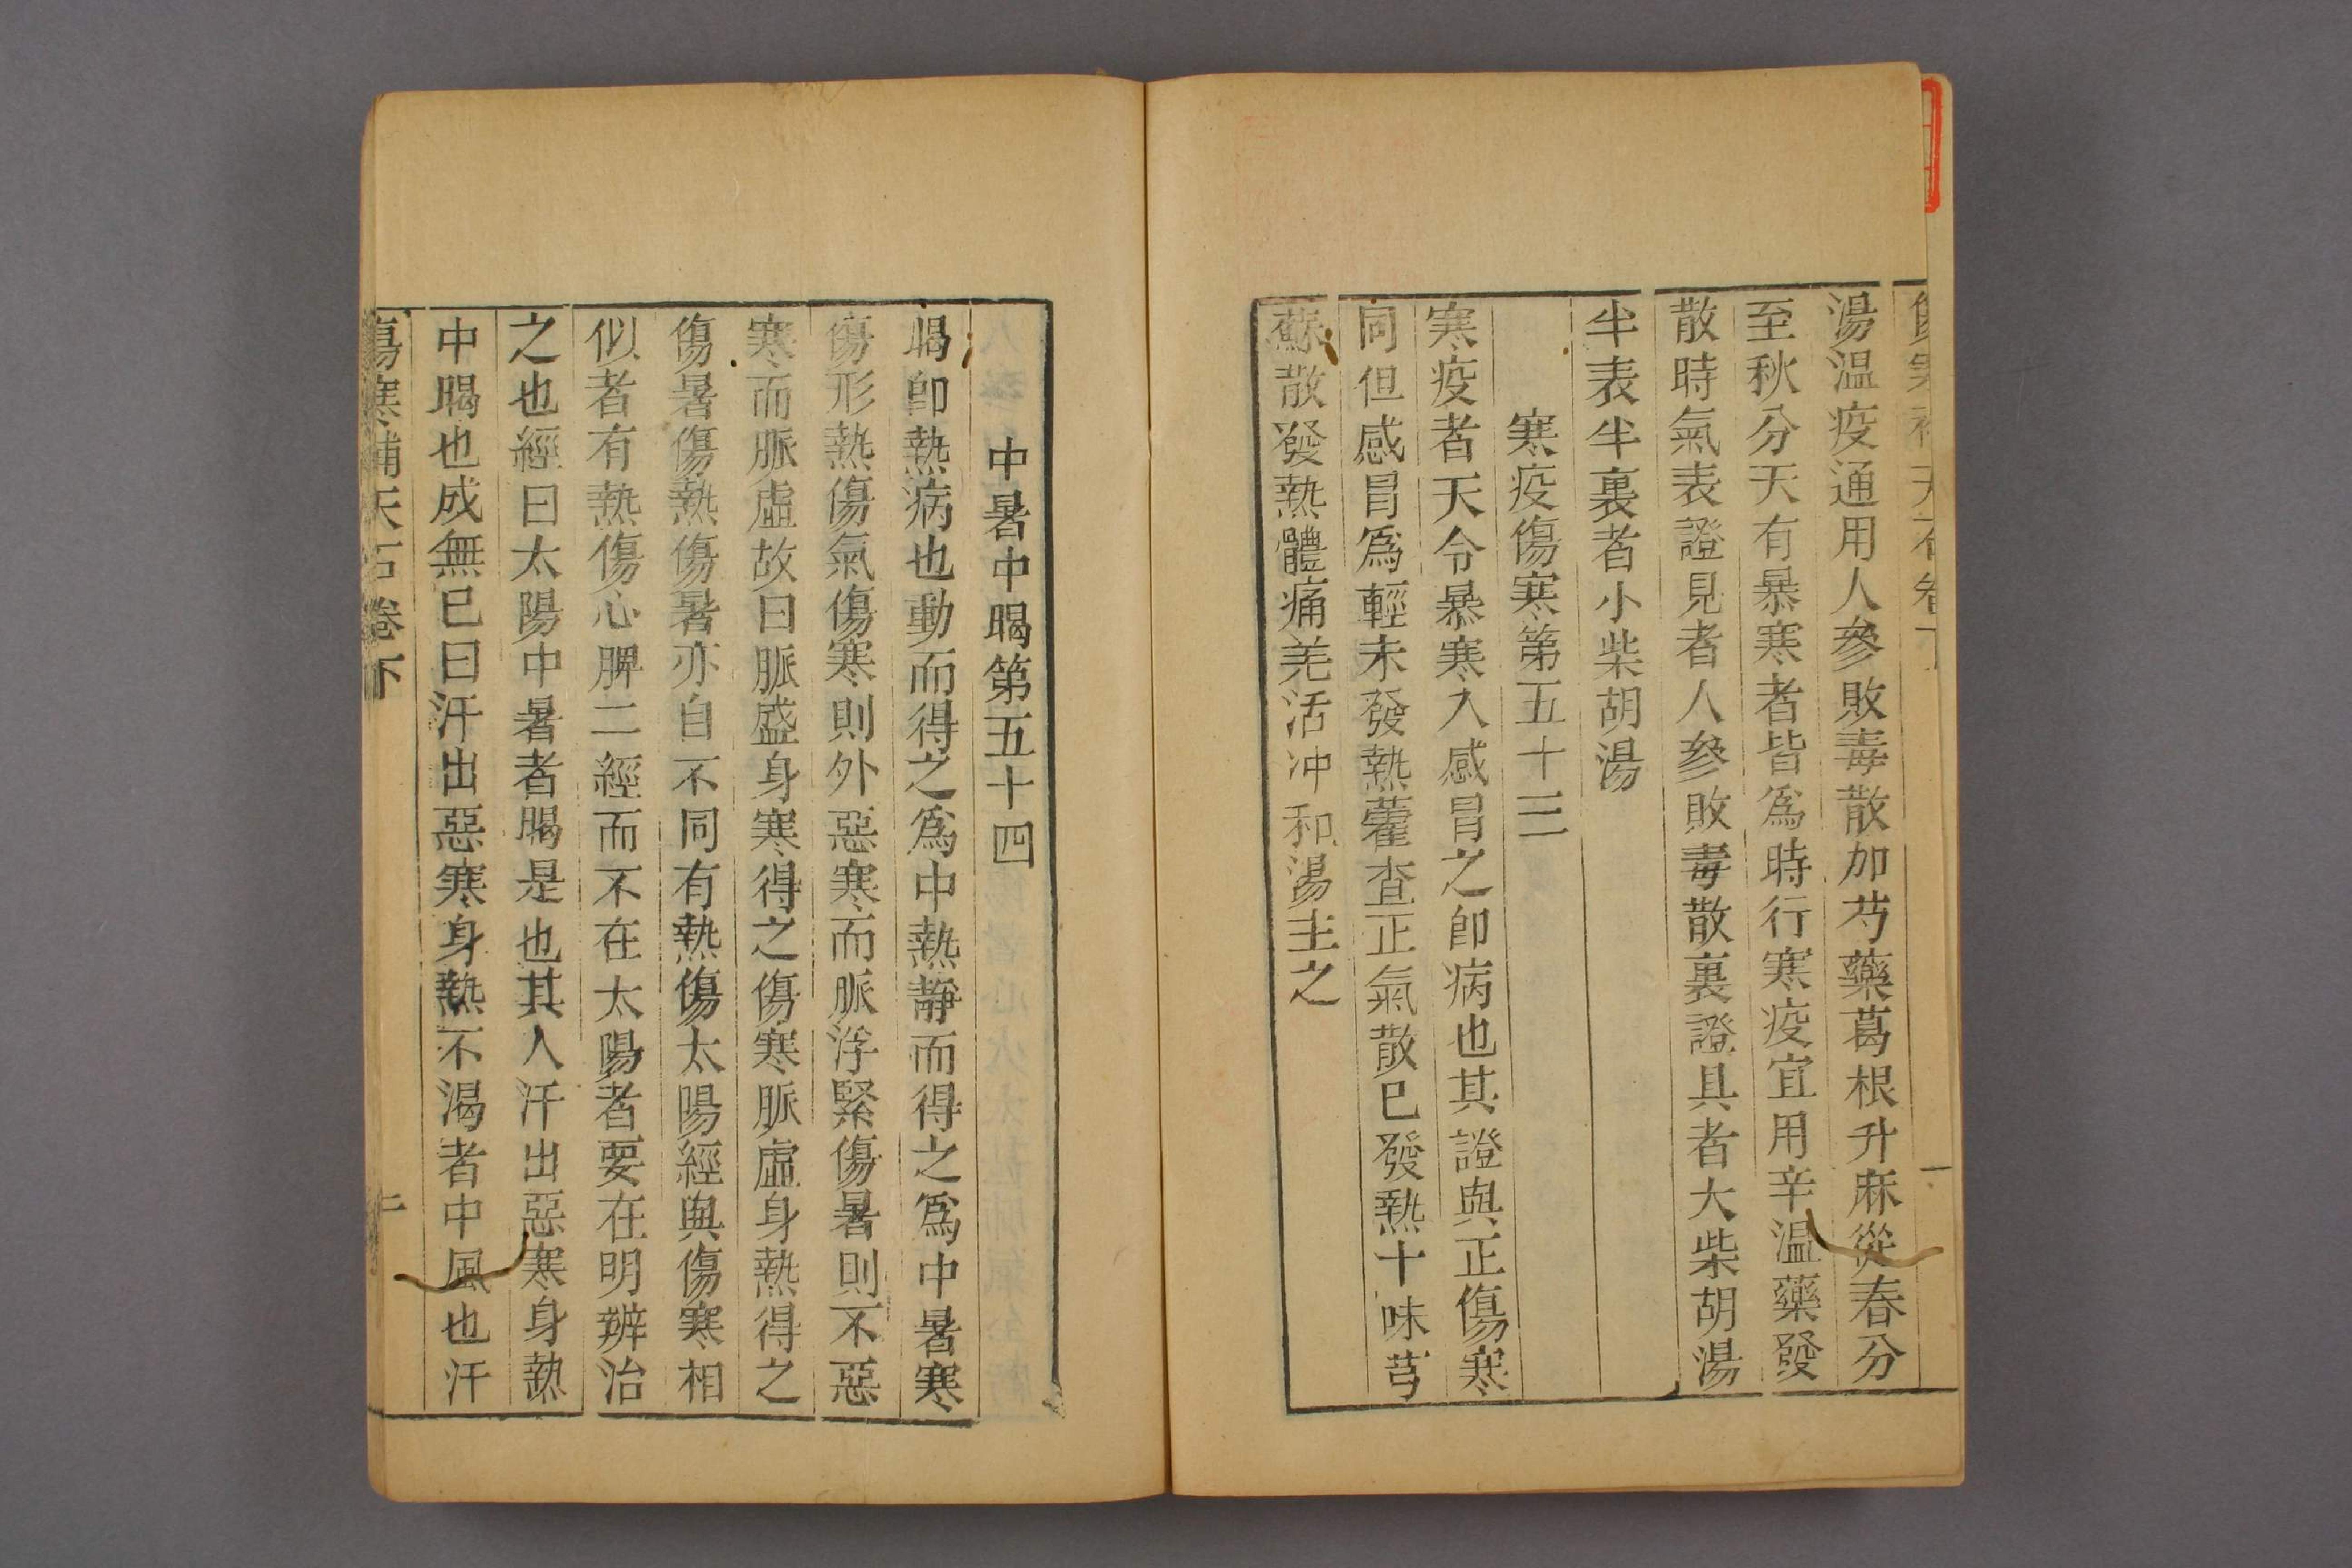 傷寒補天石卷下
湯温疫通用人參敗毒散加芍藥葛根升麻從春分
至秋分天有暴寒者皆爲時行寒疫宜用辛温藥發
散時氣表證見者人參敗毒散裏證具者大柴胡湯
半表半裏者小柴胡湯
寒疫傷寒第五十三
寒疫者天令暴寒入感冒之卽病也其證與正傷寒
同但感冒爲輕未發熱藿查正氣散巳發熱十味芎
蘇散發熱體痛羌活冲和湯主之
中暑中暍第五十四
暍卽熱病也動而得之爲中熱靜而得之爲中暑寒
傷形熱傷氣傷寒則外惡寒而脈浮緊傷暑則不惡
寒而脈虛故曰脈盛身寒得之傷寒脈虛身熱得之
傷暑傷熱傷暑亦自不同有熱傷太陽經與傷寒相
似者有熱傷心脾二經而不在太陽者要在明辨治
之也經曰太陽中暑者暍是也其人汗出惡寒身熱
中暍也成無巳曰汗出惡寒身熱不渴者中風也汗
傷寒補天石卷下